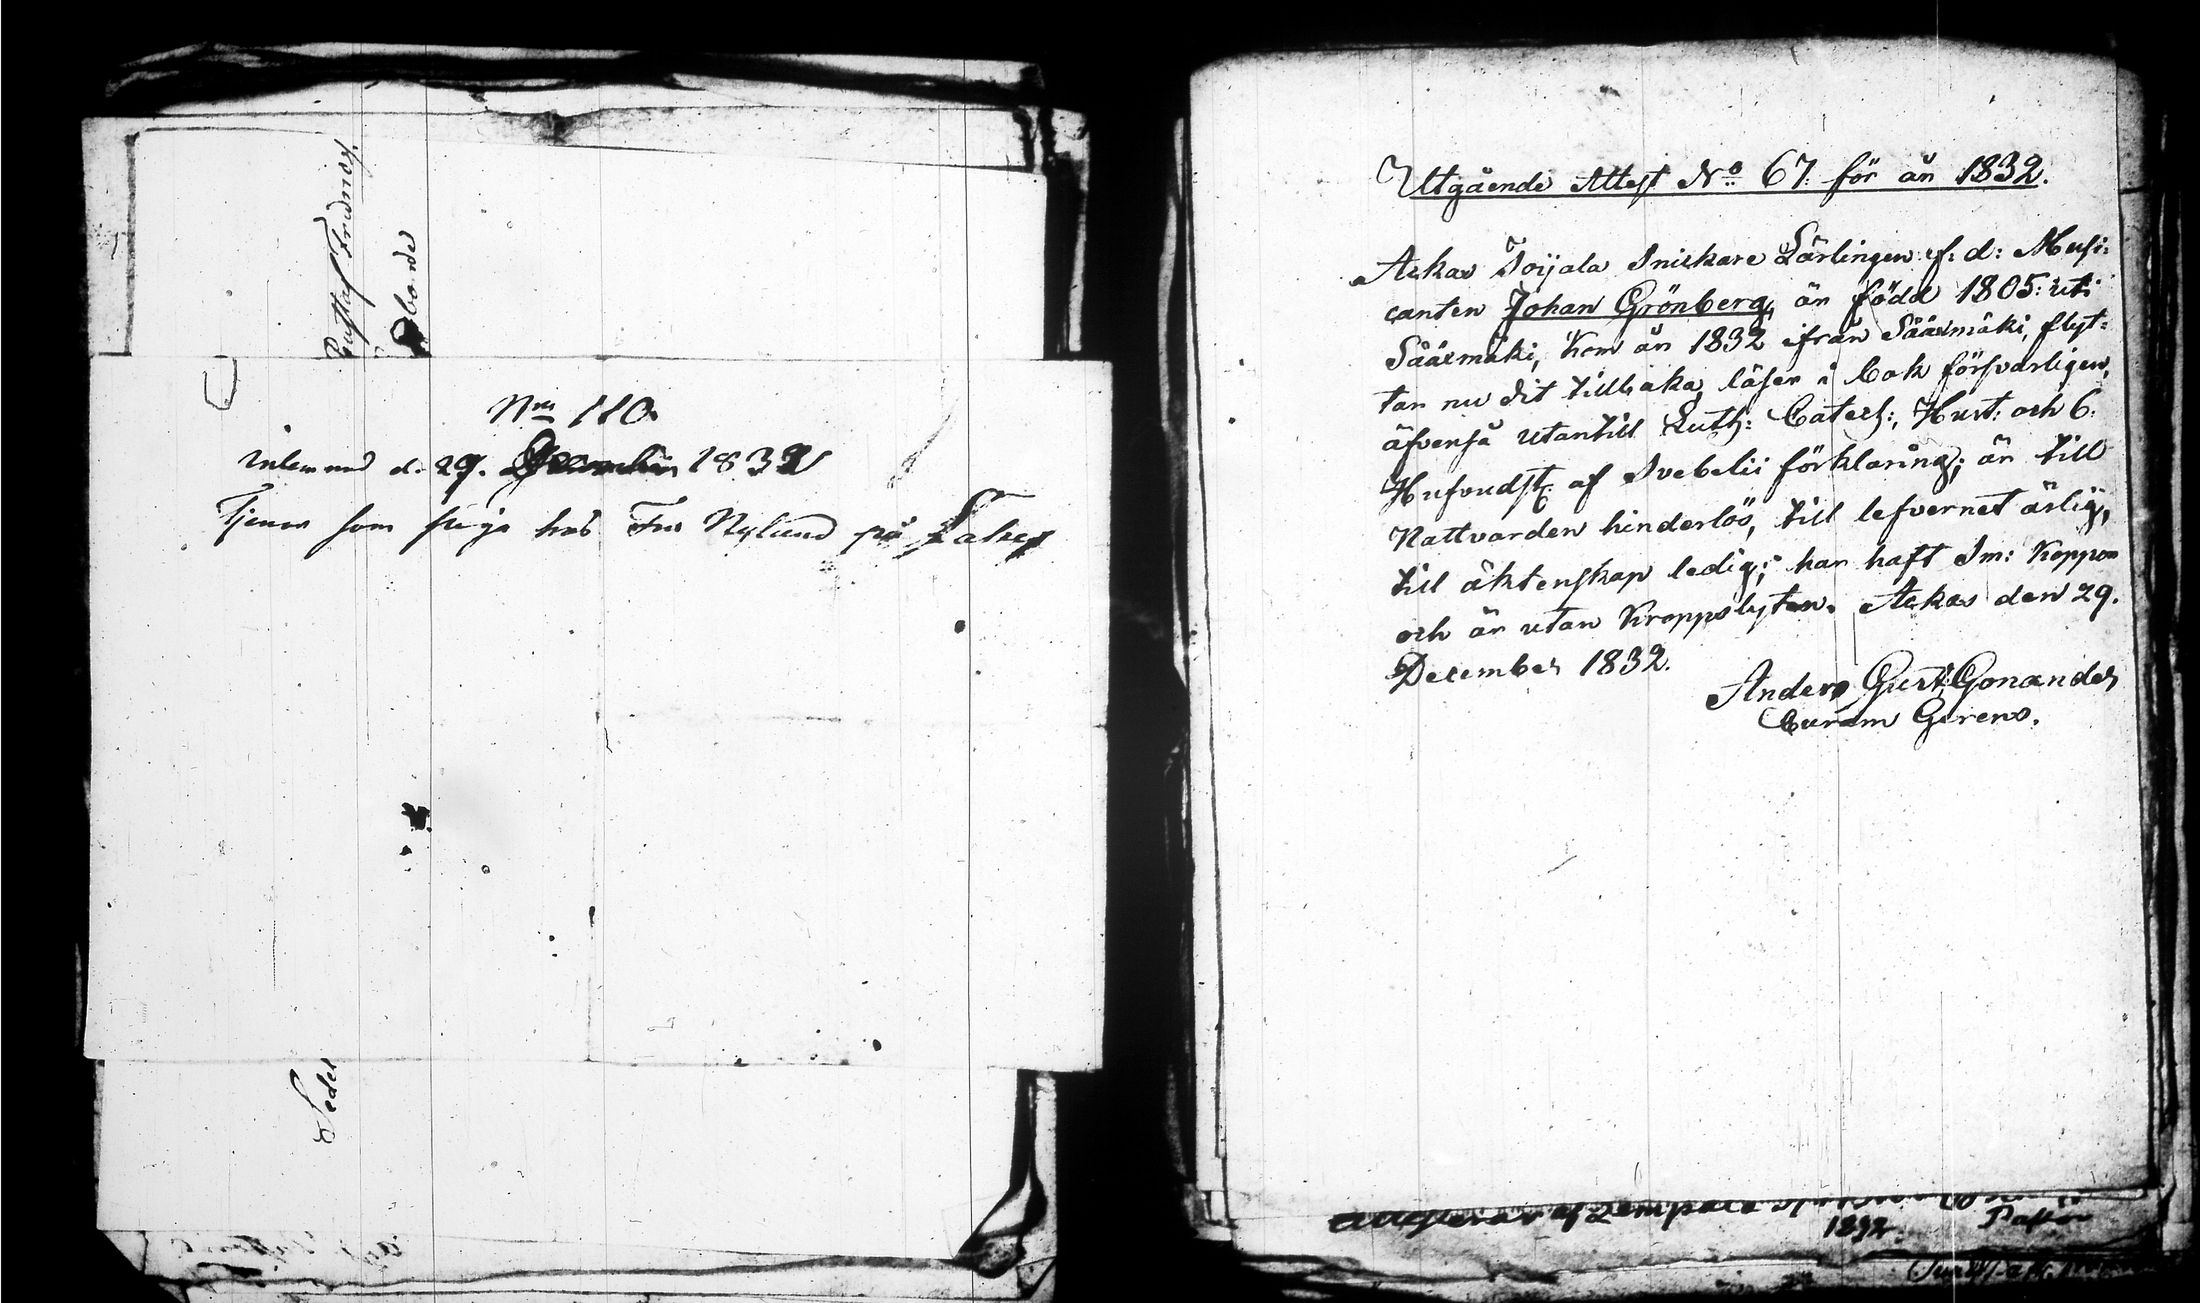 Gustaf
Nm 110.
inlemnad d. 29. December 1832
Tjenar som piga hos Fru Nylund på
Sedel
Utgående Attest No 67: för år 1832.
Ackas Toijala Snickare Lärlingen f: d: Musi:
canten Johan Grönberg, är född 1805: uti
Sääxmäki, kom år 1832 ifrån Sääxmäki, flyt:
tar nu dit tillbaka, läser i bok försvarligen,
äfvenså utantill Luth: Catech:, Hust: och 6:
Hufvudst: af Svebelii förklaring; är till
Nattvarden hinderlös, till lefvernet ärlig,
till äktenskap ledig; har haft Sm: Koppor
och är utan Kroppslyten. Ackas den 29.
December 1832.
Anders Gust: Gonander
Curam Gerens.
1832
Pastor